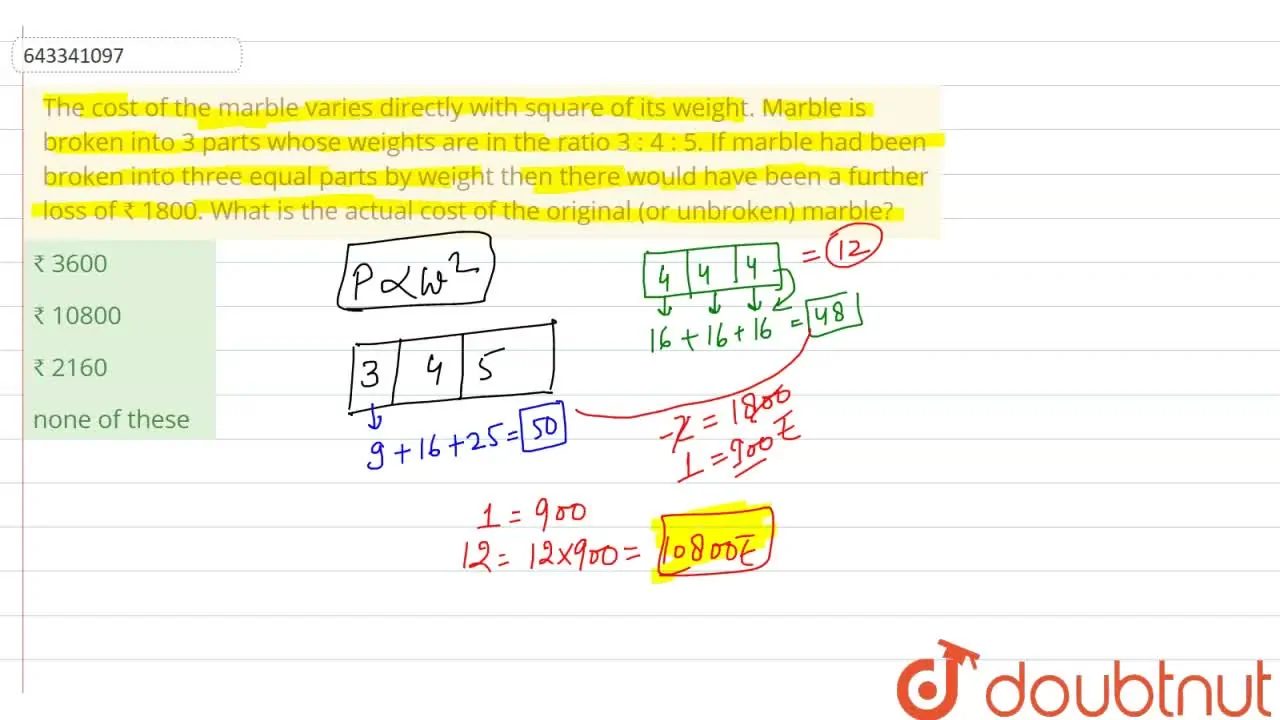 643341097
The cost of the marble varies directly with square of its weight. Marble is
broken into 3 parts whose weights are in the ratio 3 : 4 : 5. If marble had been
broken into three equal parts by weight then there would have been a further
loss of ₹ 1800. What is the actual cost of the original (or unbroken) marble?
₹ 3600
₹ 10800
₹ 2160
none of these
P∝W²
3 4 5
9+16+25=50
4 4 4 = 12
16+16+16 = 48
-2 = 1800
1 = 900 ₹
1 = 900
12 = 12×900 = 10800₹
doubtnut